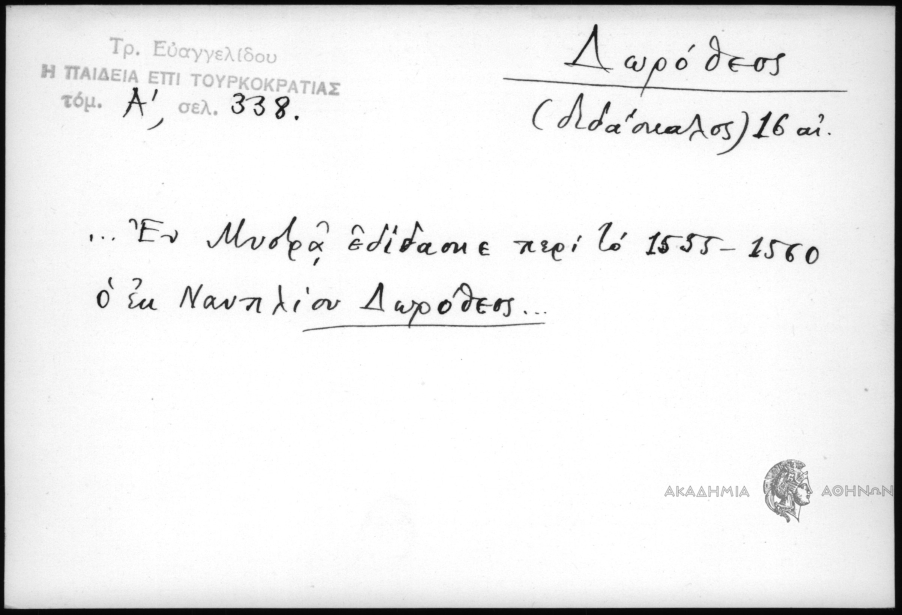 Τρ. Εὐαγγελίδου
Η ΠΑΙΔΕΙΑ ΕΠΙ ΤΟΥΡΚΟΚΡΑΤΙΑΣ
τόμ. Α', σελ. 338.
Δωρόθεος
(διδάσκαλος) 16 αἰ.
... Ἐν Μυστρᾷ ἐδίδασκε περί τό 1555-1560
ὁ ἐκ Ναυπλίου Δωρόθεος...
ΑΚΑΔΗΜΙΑ ΑΘΗΝΩΝ